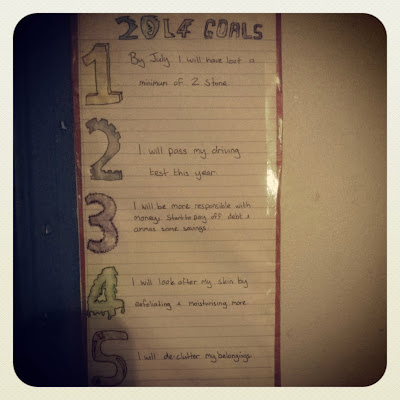 2014 GOALS
1
By July I will have lost a
minimum of 2 Stone.
2
I will pass my driving
test this year.
3
I will be more responsible with
money. Start to pay off debt &
some savings.
4
I will look after my skin by
exfoliating & moisturising more.
5
I will de-clutter my belongings.